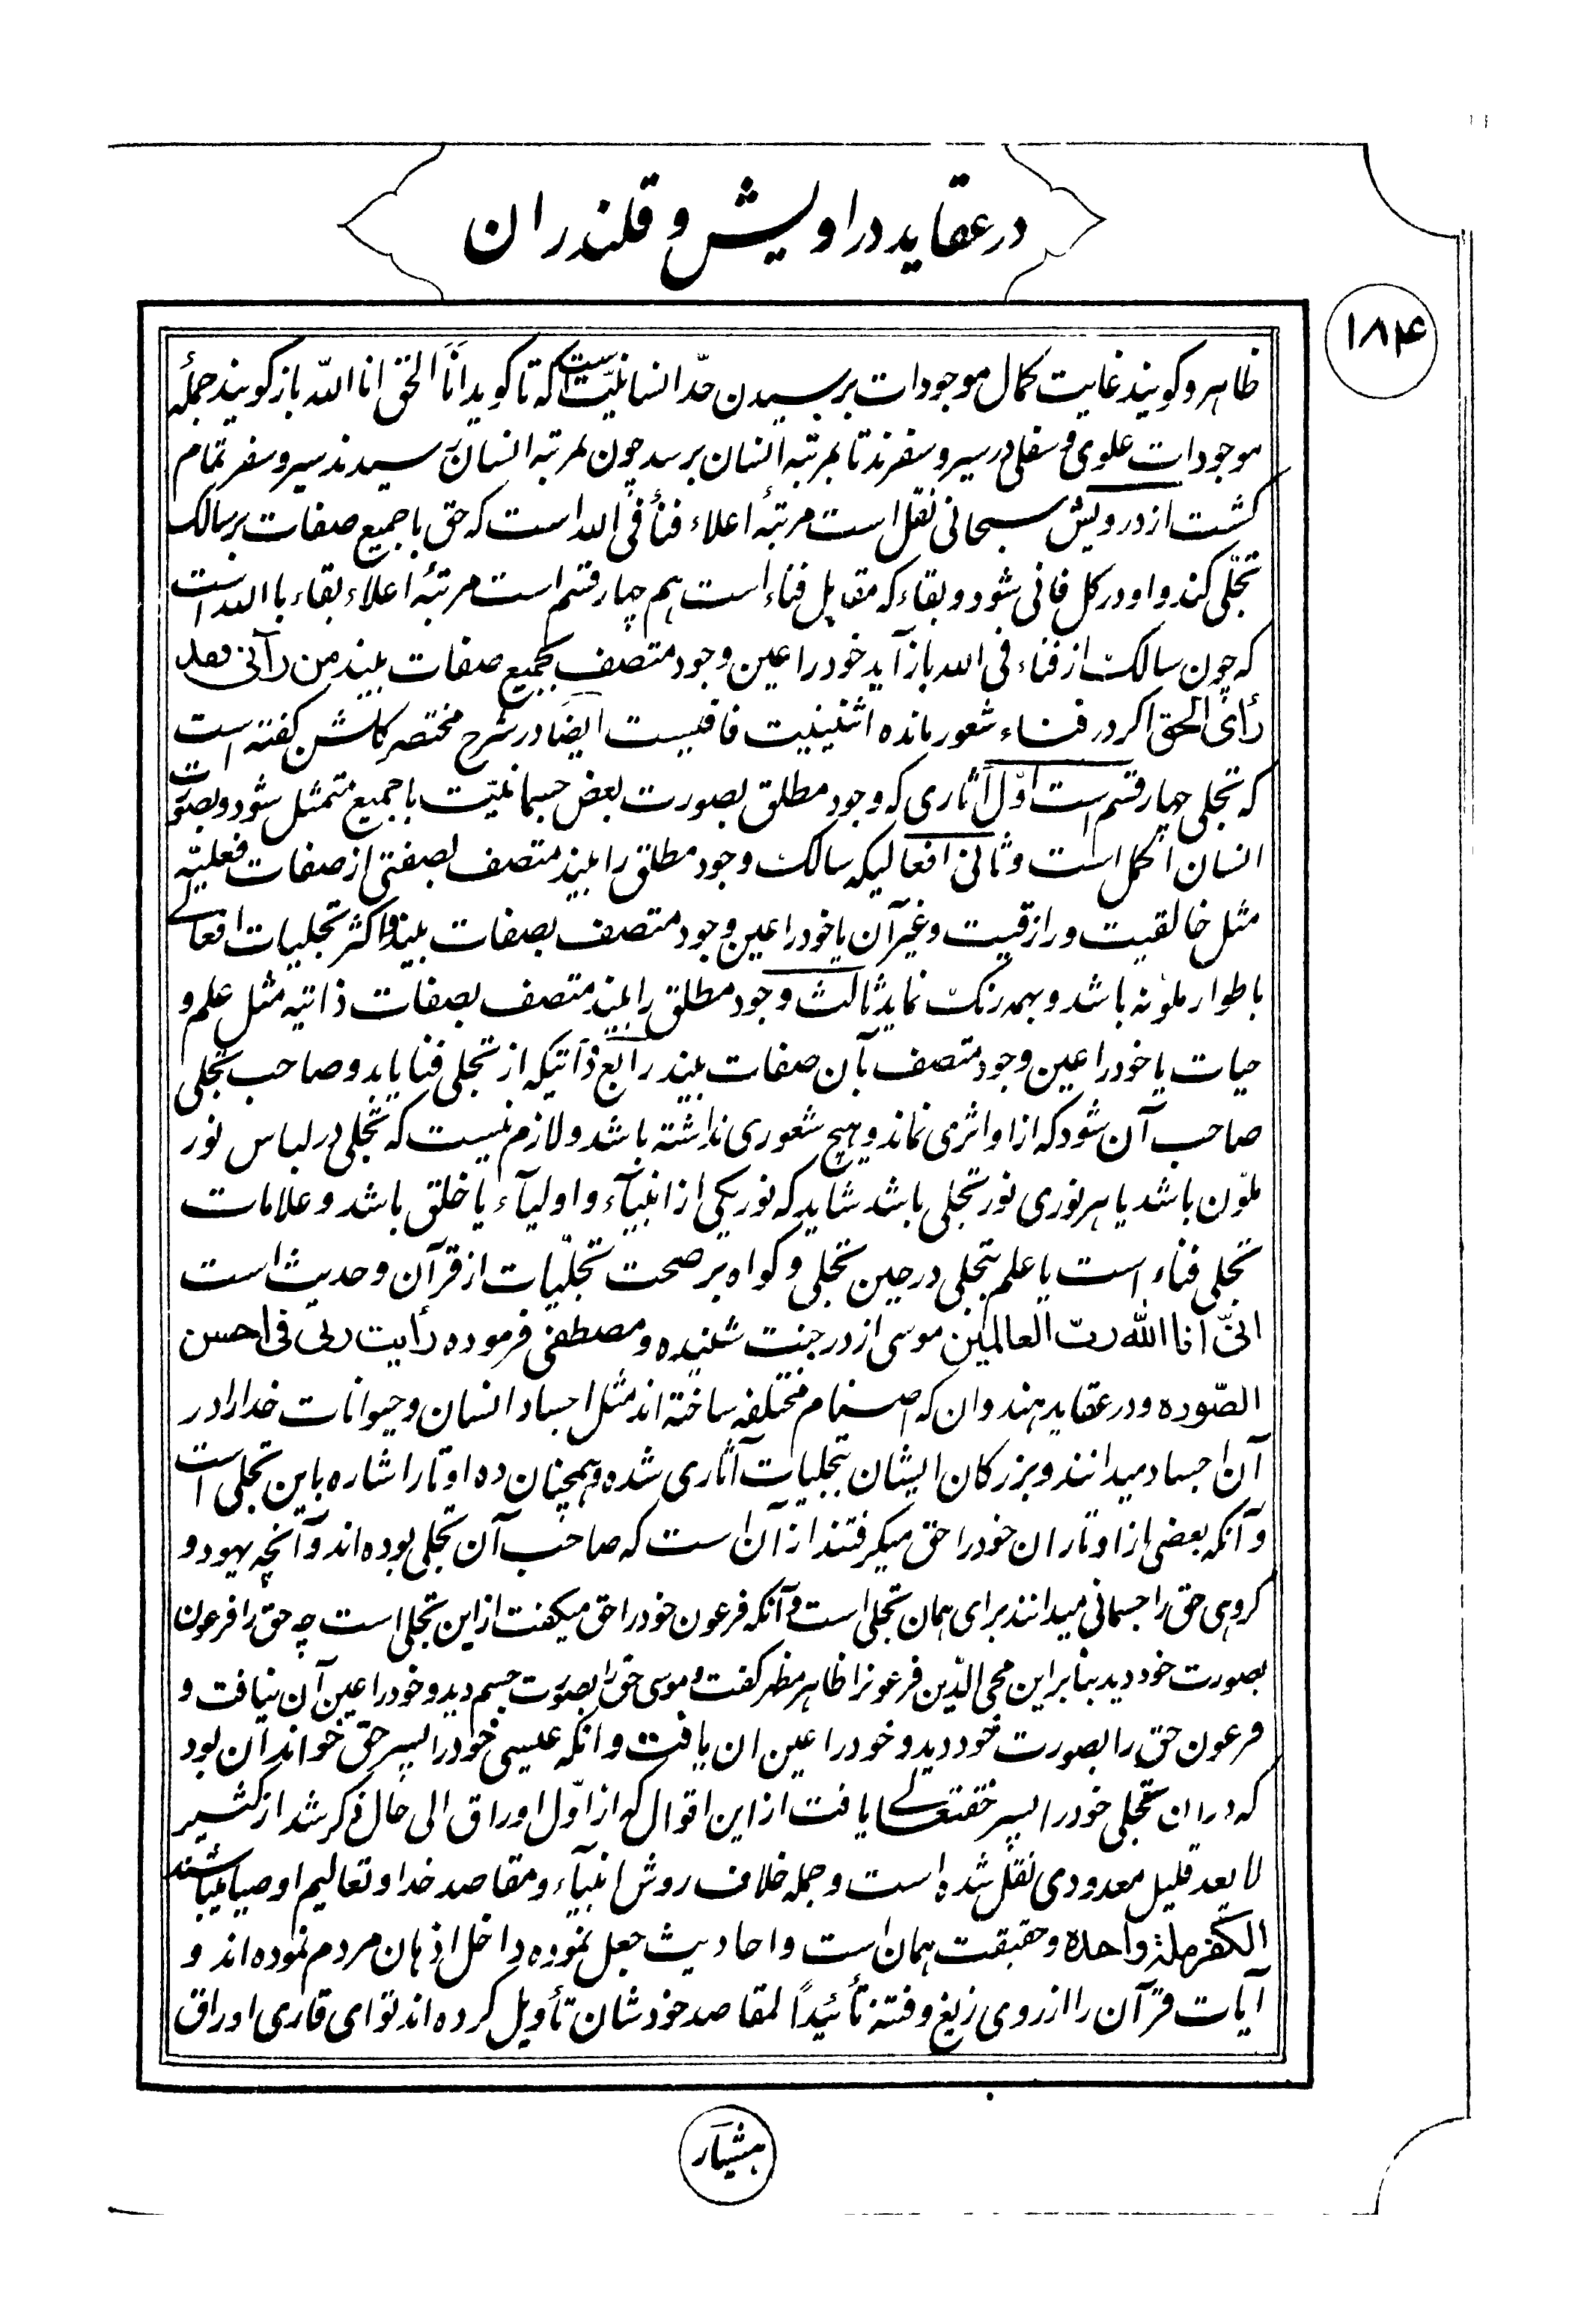 در عقاید دراویش و قلندران
۱۸۴
ظاهر و کویند غایت کمال موجودات برسیدن حدّ انسانیّت است که تا کوید اَنَا الحَق انا اللّه باز کویند جملهٔ
موجودات علوی و سفلی در سیر و سفرند تا بمرتبه انسان برسد چون بمرتبه انسان رسیدند سیر و سفر تمام
کشت از درویش سبحانی نقل است مرتبهٔ اعلاء فنأ فی الله است که حق با جمیع صفات بر سالک
تجلّی کند و او در کل فانی شود و بقاء که مقابل فناء است هم چهار قسم است مرتبهٔ اعلاء بقاء با الله است
که چون سالک از فناء فی الله باز آید خود را عین وجود متصف بجمیع صفات بیند من رآنی فقد
رأی الحق اکر در فناء شعور مانده اثنینیت فاقیست ایضاً در شرح مختصر کلشن کفته است
که تجلی چهار قسم است اوّل آثاری که وجود مطلق بصورت بعض جسمانیّت با جمیع متمثل شود و بصورت
انسان اکمل است و ثانی افعالیکه سالک وجود مطلق را بیند متصف بصفتی از صفات فعلیّه
مثل خالقیت و رازقیت و غیر آن یا خود را عین وجود متصف بصفات بیند و اکثر تجلیات افعالی
باطوار ملوّنه باشد و بهمه رنک نماید ثالث وجود مطلق را بیند متصف بصفات ذاتیه مثل علم و
حیات یا خود را عین وجود متصف بآن صفات بیند رابع ذاتیکه از تجلی فنا یابد و صاحب تجلی
صاحب آن شود که از او اثری نماند و هیچ شعوری نداشته باشد و لازم نیست که تجلی در لباس نور
ملوّن باشد یا هر نوری نور تجلی باشد شاید که نور یکی از انبیآء و اولیآء یا خلق باشد و علامات
تجلی فناء است یا علم بتجلی در حین تجلی و کواه بر صحت تجلّیات از قرآن و حدیث است
انّی انا الله ربّ العالمین موسی از درخت شنیده و مصطفی فرموده رأیت ربی فی احسن
الصّوره و در عقاید هندوان که اصنام مختلفه ساخته اند مثل اجساد انسان و حیوانات خدا را در
آن اجساد میدانند و بزرکان ایشان بتجلیات آثاری شده و همچنان ده اوتار اشاره باین تجلی است
و آنکه بعضی از اوتاران خود را حق میکرفتند از آن است که صاحب آن تجلی بوده اند و آنچه یهود و
کروهی حق را جسمانی میدانند برای همان تجلی است و آنکه فرعون خود را حق میکفت از این تجلی است چه حق را فرعون
بصورت خود دید بنابر این محی الدّین فرعونرا ظاهر مظهر کفت و موسی حق را بصوَرت جسم دید و خود را عین آن نیافت و
فرعون حق را بصورت خود دید و خود را عین ان یافت و انکه عیسی خود را پسر حق خواند آن بود
که در ان تجلی خود را پسر حقتعالی یافت از این اقوال که از اوّل اوراق الی حال ذکر شد از کثیر
لا یعد قلیل معدودی نقل شده است و جمله خلاف روش انبیآء و مقاصد خدا و تعالیم اوصیا میباشند
الکفر ملة واحدة و حقیقت همان است و احادیث جعل نموده داخل اذهان مردم نموده اند و
آیات قرآن را از روی زیغ و فتنه تأئیداً لمقاصد خودشان تأویل کرده اند تو ای قاری اوراق
هشیار